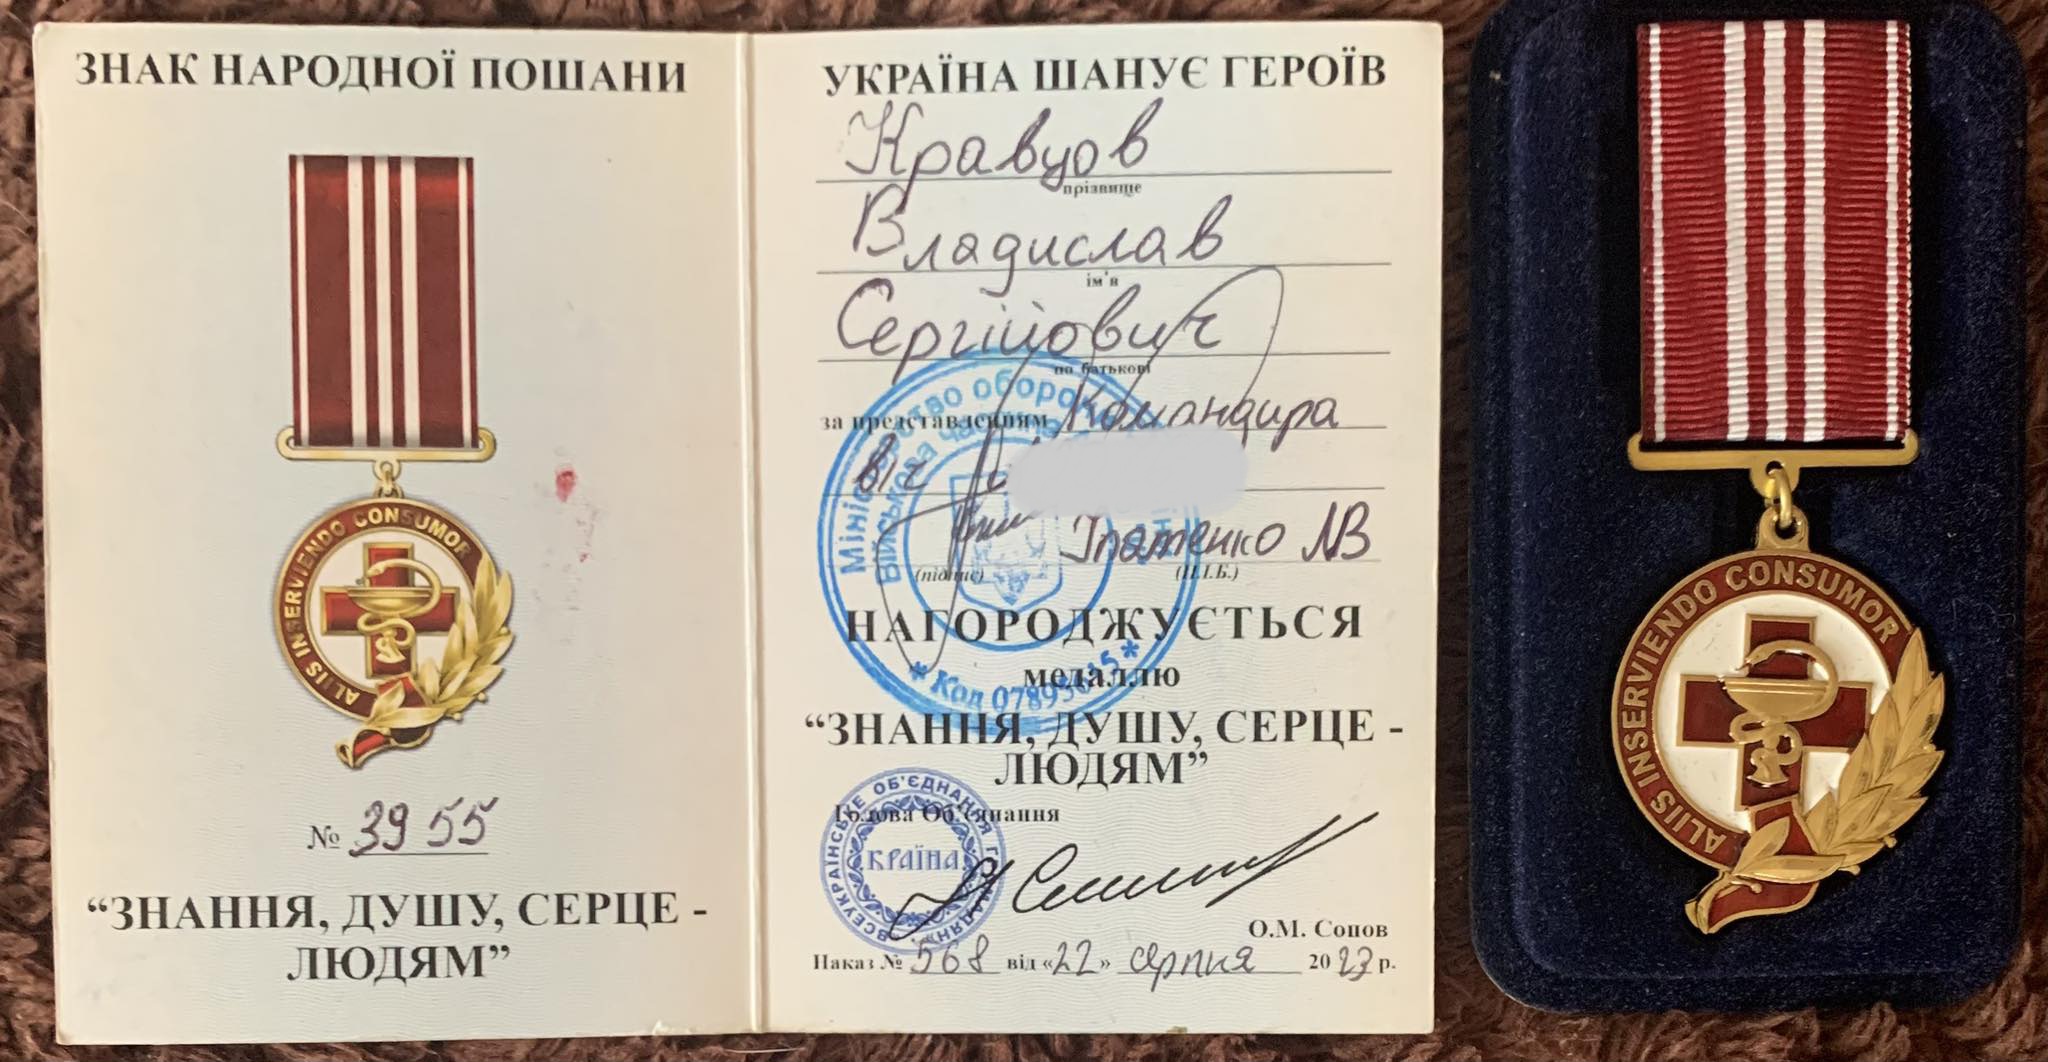 ЗНАК НАРОДНОЇ ПОШАНИ
ALIIS INSERVIENDO CONSUMOR
№ 3955
“ЗНАННЯ, ДУШУ, СЕРЦЕ -
ЛЮДЯМ”
УКРАЇНА ШАНУЄ ГЕРОЇВ
Кравцов
прізвище
Владислав
ім'я
Сергійович
по батькові
за представленням Командира
в/ч
Ігнатенко
(підпис) (П.І.Б.)
НАГОРОДЖУЄТЬСЯ
медаллю
“ЗНАННЯ, ДУШУ, СЕРЦЕ -
ЛЮДЯМ”
Голова Об'єднання
О.М. Сопов
Наказ № 568 від «22» серпня 2023 р.
Міністерство оборони
Військова частина
* Код *
ВСЕУКРАЇНСЬКЕ ОБ'ЄДНАННЯ ГРОМАДЯН
КРАЇНА
ALIIS INSERVIENDO CONSUMOR